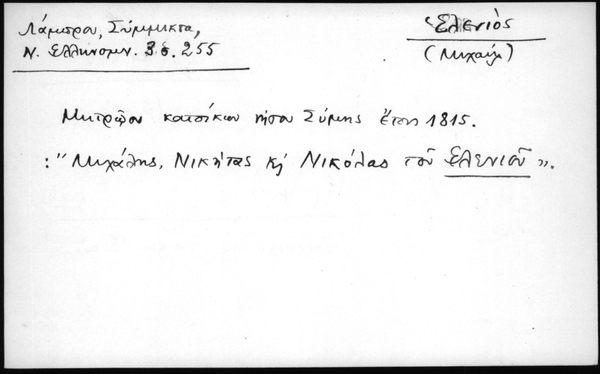 Λάμπρου, Σύμμικτα,
Ν. Ελληνομν. 3 σ. 255
Ἑλενιὸς
(Μιχαήλ)
Μητρῷον κατοίκων νήσου Σύμης ἔτους 1815.
: " Μιχάλης, Νικήτας κὴ Νικόλας τοῦ Ἑλενιοῦ ».